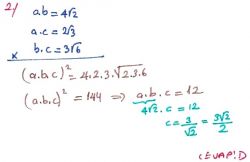 2/
a.b = 4√2
a.c = 2√3
b.c = 3√6
x
(a.b.c)² = 4.2.3.√2.3.6
(a.b.c)² = 144 ⇒ a.b.c = 12
4√2 . c = 12
c = 3/√2 = 3√2/2
CEVAP: D